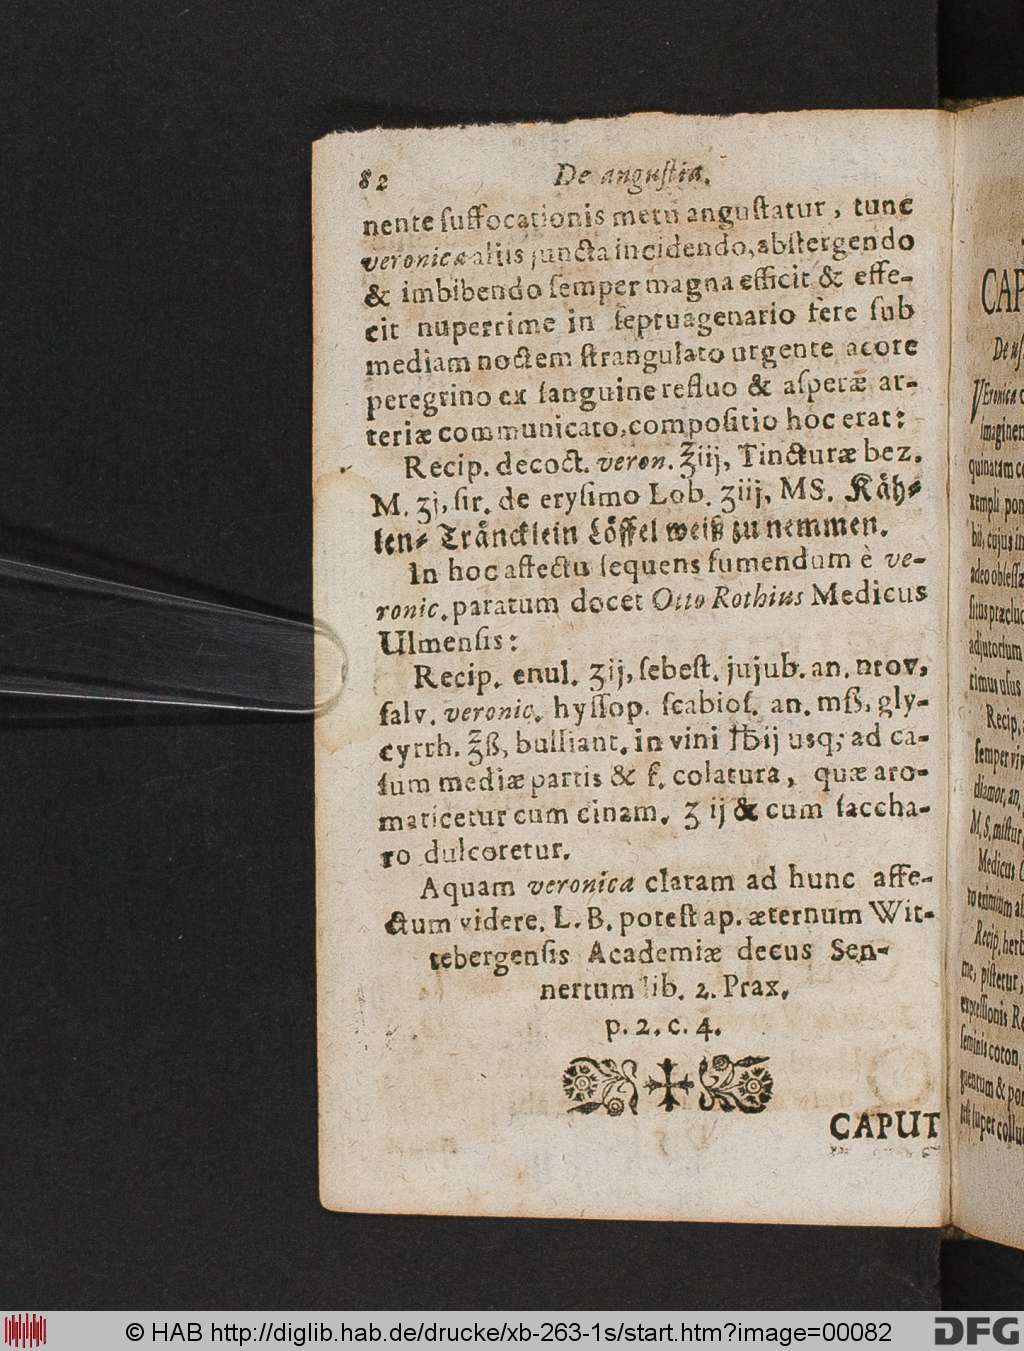 82 De anguſtia.
nente ſuffocationis metu anguſtatur, tunc
veronica aliis juncta incidendo, abſtergendo
& imbibendo ſemper magna efficit & effe-
cit nuperrime in ſeptuagenario fere ſub
mediam noctem ſtrangulato urgente acore
peregrino ex ſanguine refluo & aſperæ ar-
teriæ communicato, compoſitio hoc erat:
Recip. decoct. veron. ℥iij, Tincturæ bez.
M. ʒj, ſir. de eryſimo Lob. ʒiij, MS. Kåh-
len- Tråncklein Lôffel weiß zu nemmen.
In hoc affectu ſequens ſumendum è ve-
ronic. paratum docet Otto Rothius Medicus
Ulmenſis:
Recip. enul. ʒij, ſebeſt. jujub. an. nrov,
ſalv. veronic. hyſſop. ſcabioſ. an. mß, gly-
cyrrh. ℥ß, bulliant. in vini ℔ij usq; ad ca-
ſum mediæ partis & f. colatura, quæ aro-
maticetur cum cinam. ʒ ij & cum ſaccha-
ro dulcoretur.
Aquam veronica claram ad hunc affe-
ctum videre. L. B. poteſt ap. æternum Wit-
tebergenſis Academiæ decus Sen-
nertum lib. 2. Prax.
p. 2. c. 4.
CAPUT
CAP
De uſ
VEronica
imaginen
quinatam co
xempli pon
bil, cujus in
adeo obſeſſæ
ſitus præcluc
adjutorium
rimus uſus
Recip.
ſemper viv
diamor, an,
M, S, miſtur
Medicus
to eximium al
Recip. herb
me, piſtetur,
expreſſionis Re
ſeminis coton,
guentum & pon
ſuper collum
© HAB http://diglib.hab.de/drucke/xb-263-1s/start.htm?image=00082
DFG